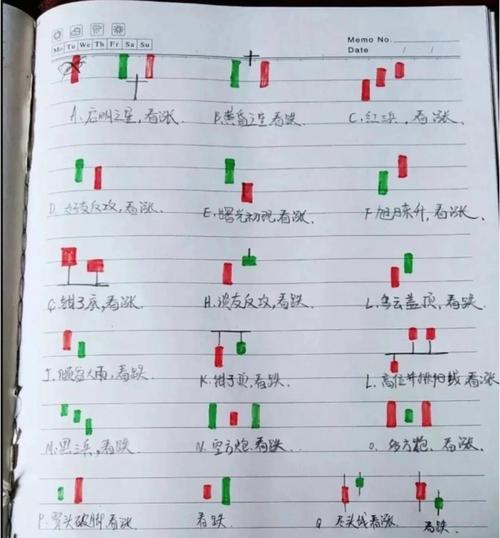 Memo No.
Mo Tu We Th Fr Sa Su
Date / /
A. 启明之星，看涨. B. 黄昏之星看跌. C. 红三兵，看涨.
D. 好友反攻，看涨. E. 曙光初现看涨. F. 旭日东升，看涨.
G. 钳子底，看涨. H. 淡友反攻，看跌. L. 乌云盖顶，看跌.
J. 倾盆大雨，看跌. K. 钳子顶，看跌. L. 高位并排阳线，看涨
M. 黑三兵，看跌. N. 空方炮，看跌. O. 多方炮，看涨.
P. 穿头破脚看涨. 看跌. Q 尽头线看涨. 看跌.